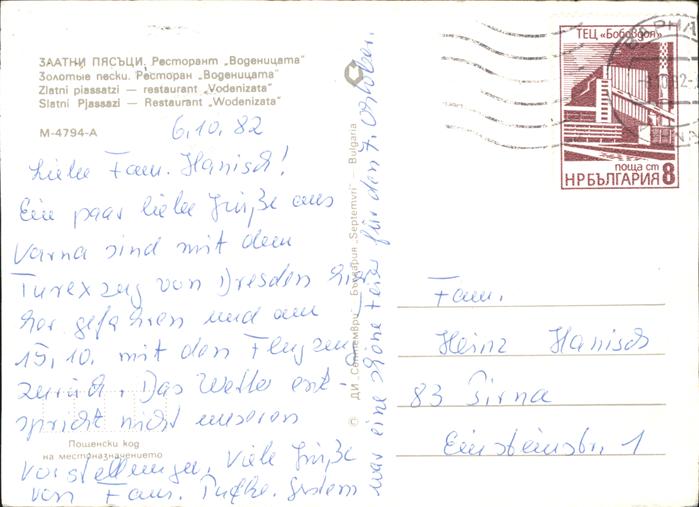 ЗЛАТНИ ПЯСЪЦИ. Ресторант „Воденицата"
Золотые пески. Ресторан „Воденицата"
Zlatni piassatzi — restaurant „Vodenizata"
Slatni Pjassazi — Restaurant „Wodenizata"
М-4794-А
6.10.82
Liebe Fam. Hanisch!
Ein paar liebe Grüße aus
Varna sind mit dem
Turexzug von Dresden hier
her gefahren und am
15.10. mit den Flugzeug
zurück. Das Wetter ent-
spricht nicht unseren
Vorstellungen, Viele Grüße
von Fam. Gestern
war eine schöne Feier für den 7. Oktober.
Пощенски код
на местоназначението
© ДИ „Септември" — България „Septemvri" — Bulgaria
ТЕЦ «Бобовдол»
поща ст 8
НРБЪЛГАРИЯ
ВАРНА
Fam.
Heinz Hanisch
83 Pirna
Einsteinstr. 1